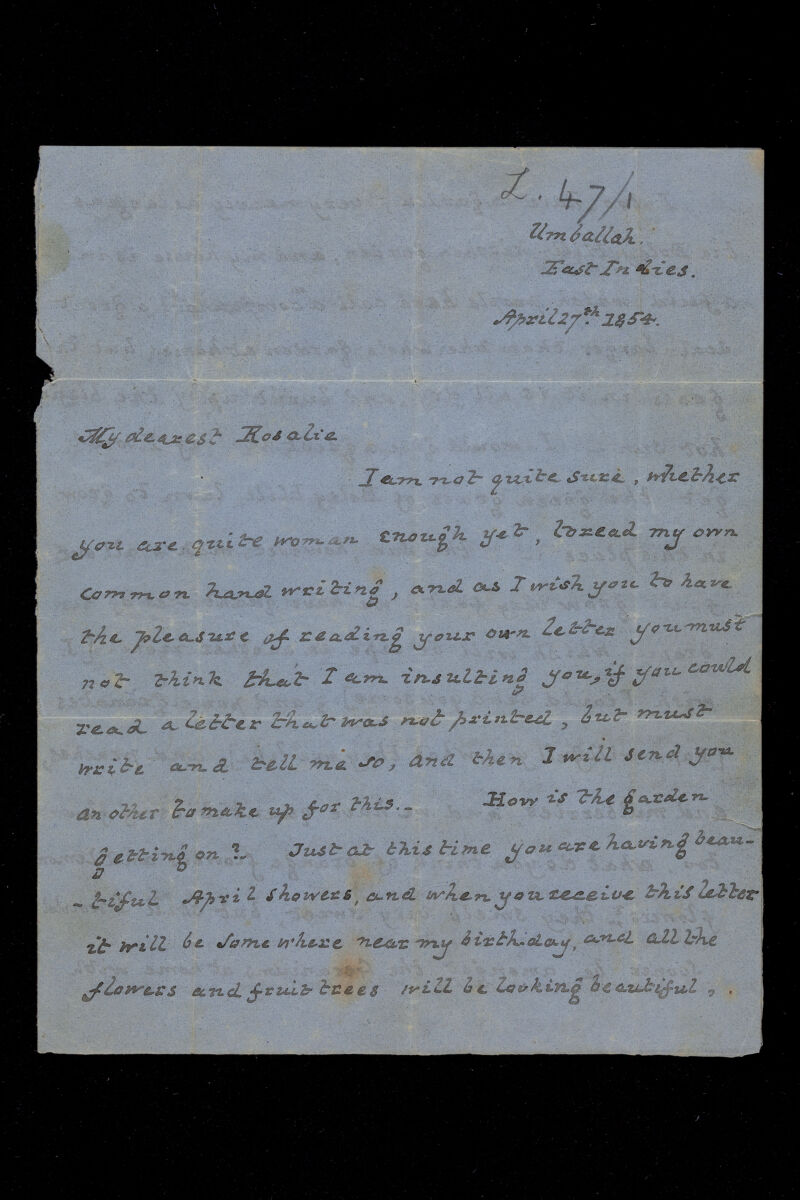 L. 47/1
Umballah.
East Indies.
April 27th. 1854.
My dearest Rosalie
I am not quite sure, whether
you are quite woman enough yet, to read my own
common hand writing, and as I wish you to have
the pleasure of reading your own letter you must
not think that I am insulting you, if you could
read a letter that was not printed, but must
write and tell me so, and then I will send you
another to make up for this.-
How is the garden
getting on?- Just at this time you are having beau-
-tiful April showers, and when you receive this letter
it will be some where near my birthday, and all the
flowers and fruit trees will be looking beautiful,.